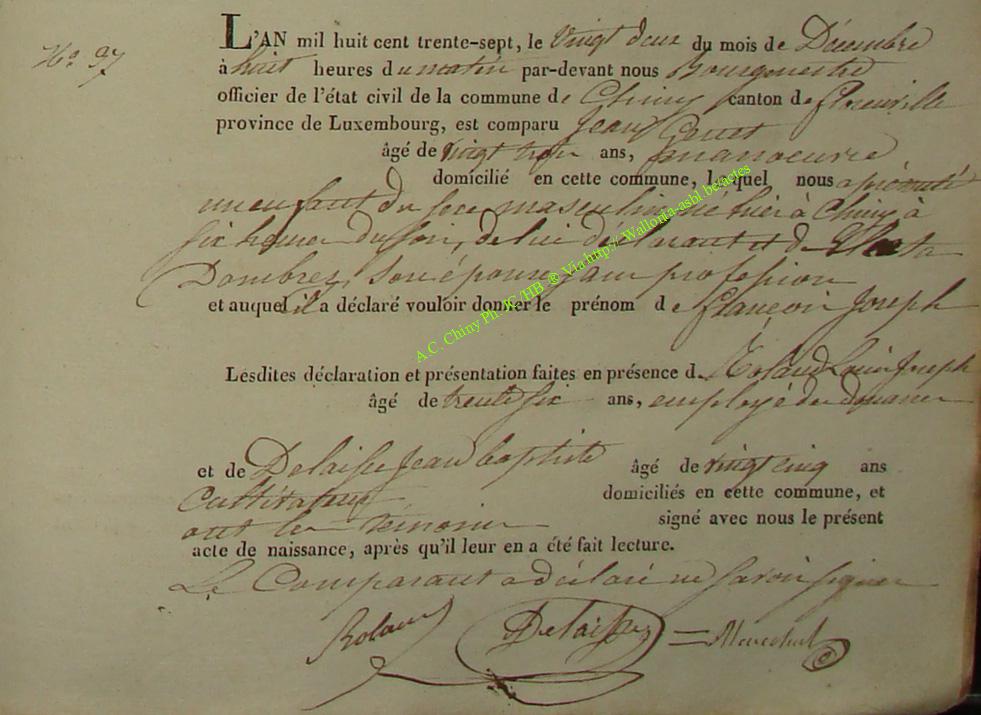 N° 97
L'AN mil huit cent trente-sept, le Vingt deux du mois de Décembre
à huit heures du matin par-devant nous Bourgmestre
officier de l'état civil de la commune de Chiny canton de florenville
province de Luxembourg, est comparu Jean
âgé de vingt trois ans, manoeuvre
domicilié en cette commune, lequel nous a présenté
un enfant du sexe masculin né hier à Chiny à
six heures du soir, de lui déclarant et de
Dombret, son épouse, sans profession
et auquel il a déclaré vouloir donner le prénom de françois Joseph
Lesdites déclaration et présentation faites en présence de Roland Louis Joseph
âgé de trente six ans, employé des douanes
et de Delaisse Jean baptiste âgé de vingt cinq ans
Cultivateur domiciliés en cette commune, et
ont les témoins signé avec nous le présent
acte de naissance, après qu'il leur en a été fait lecture.
Le Comparant a déclaré ne savoir signer
Roland Delaisse = Marechal
A.C. Chiny Ph JC/HB ® Via http:// Wallonia-asbl be:actes